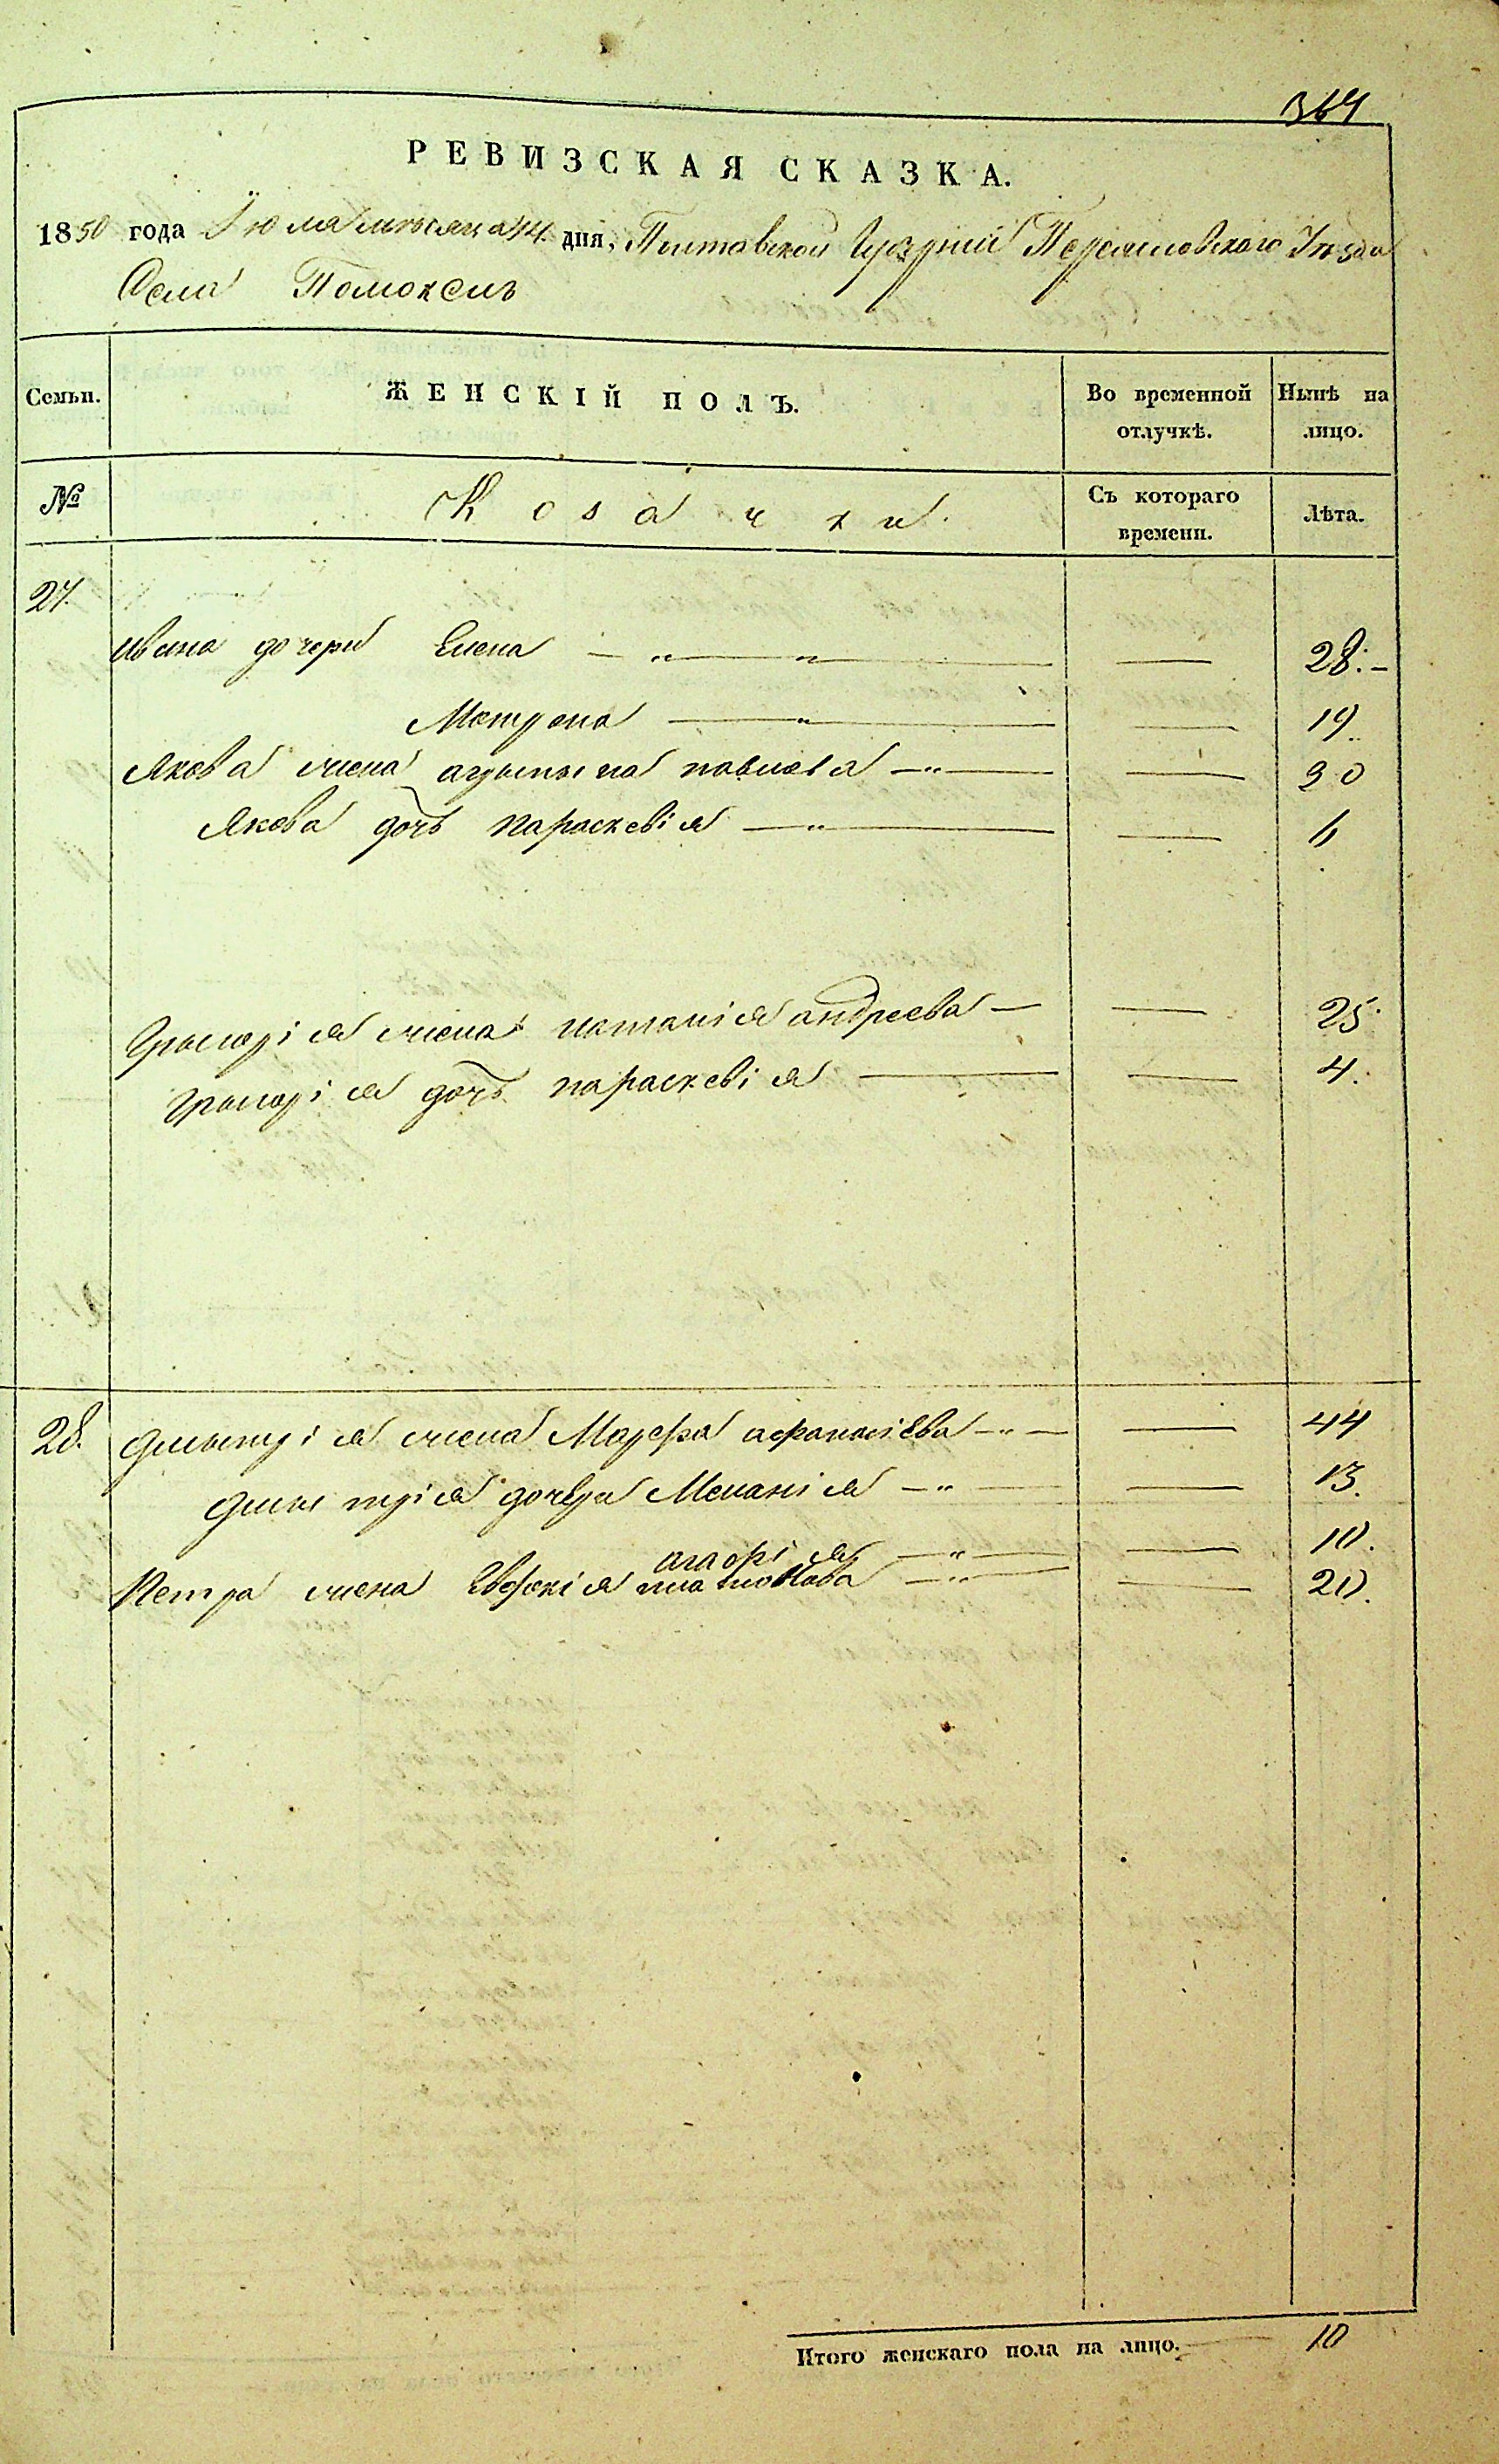 364
РЕВИЗСКАЯ СКАЗКА.
1850 года Іюля мѣсяца 14. дня, Полтавской Губерніи Переяславского Уѣзда
Села Помоклъ
Семьи. ЖЕНСКІЙ ПОЛЪ. Во временной отлучкѣ. Нынѣ на лицо.
№ Козачки. Съ котораго времени. Лѣта.
27.
Ивана дочери Елена — „ — „ — — 28.
Матрона — „ — — 19.
Якова жена агрыпына павлова — „ — — 30
Якова дочь параскевія — „ — — 6
Григорія жена наталія андреева — — 25.
григорія дочь параскевія — — 4.
28. Дмытрія жена Марфа афанасіева — „ — — 44
Дмытрія дочери Меланія — „ — — 13.
агафія — „ — — 10.
Петра жена Евфокія платонова — „ — — 20.
Итого женскаго пола на лицо. — 10